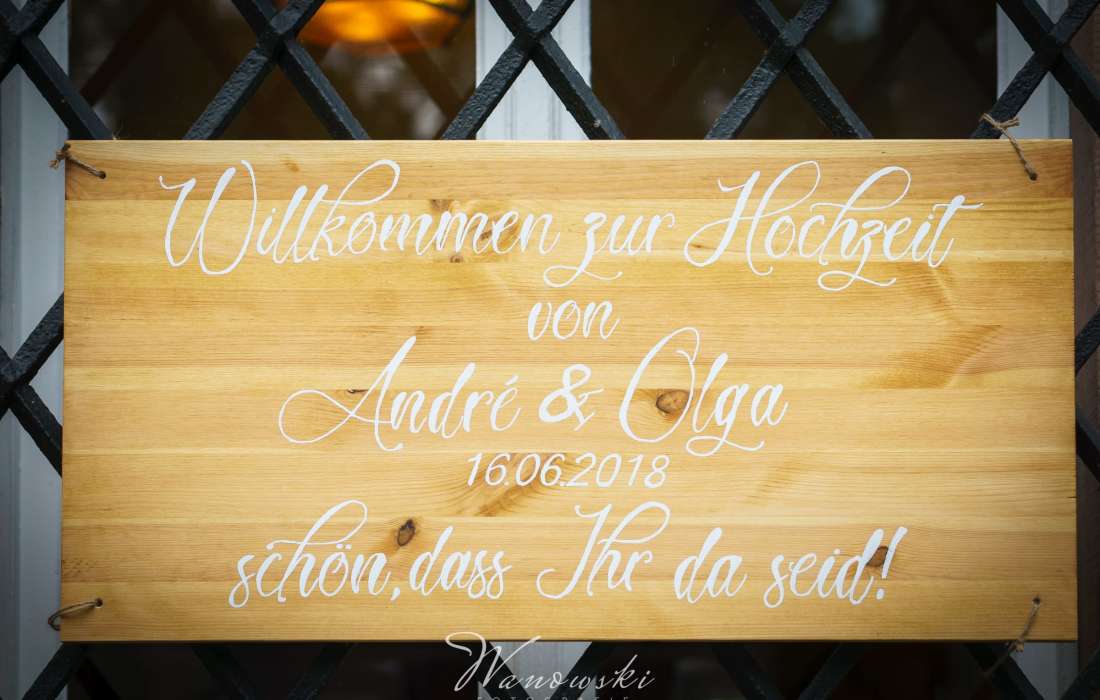 Willkommen zur Hochzeit
von
André & Olga
16.06.2018
schön, dass Ihr da seid!
Wanowski